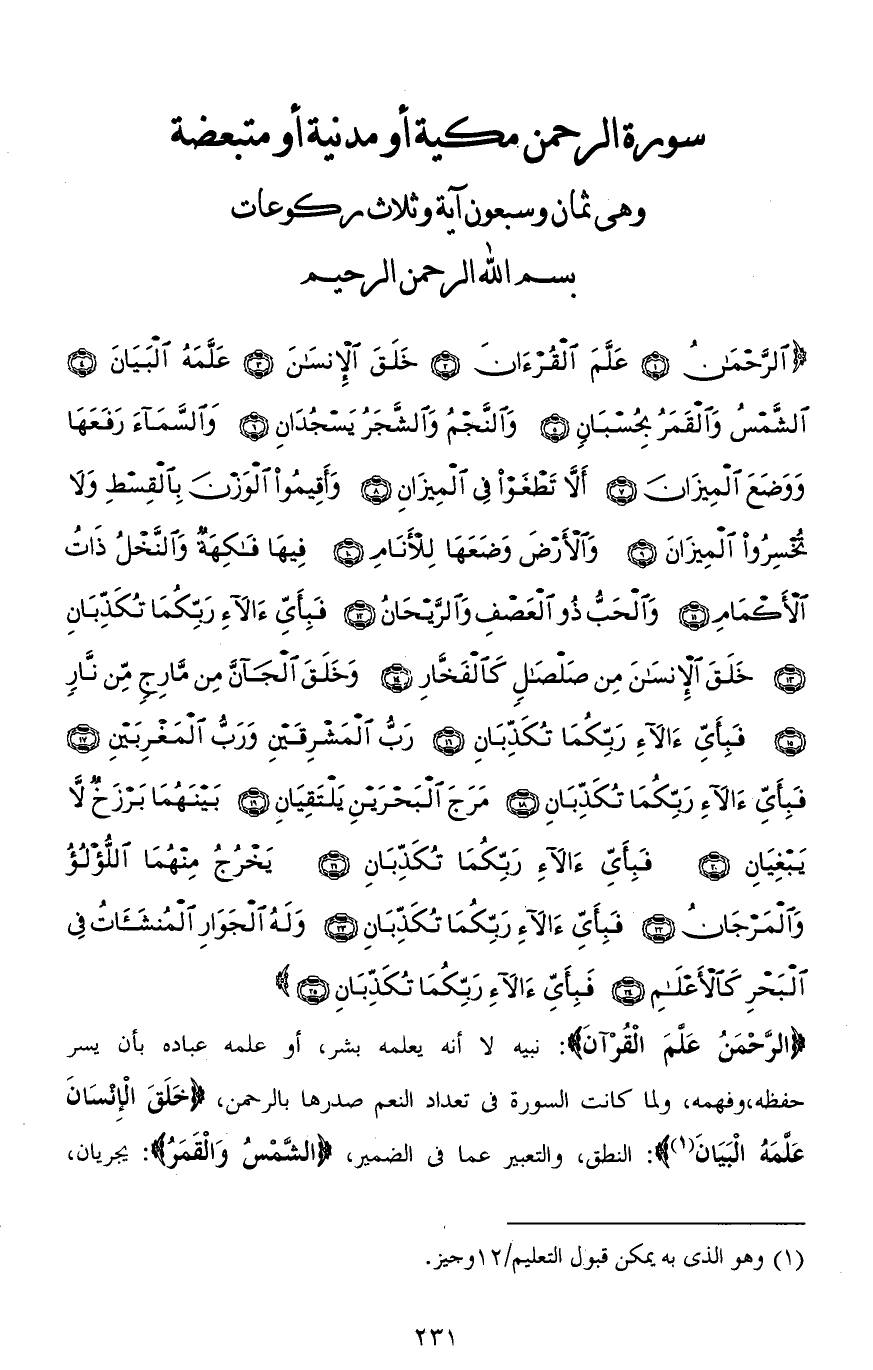 سورة الرحمن مكية أو مدنية أو متبعضة
وهى ثمان وسبعون آية وثلاث ركوعات
بسم الله الرحمن الرحيم
﴿ٱلرَّحْمَـٰنُ ۝١ عَلَّمَ ٱلْقُرْءَانَ ۝٢ خَلَقَ ٱلْإِنسَـٰنَ ۝٣ عَلَّمَهُ ٱلْبَيَانَ ۝٤
ٱلشَّمْسُ وَٱلْقَمَرُ بِحُسْبَانٍ ۝٥ وَٱلنَّجْمُ وَٱلشَّجَرُ يَسْجُدَانِ ۝٦ وَٱلسَّمَآءَ رَفَعَهَا
وَوَضَعَ ٱلْمِيزَانَ ۝٧ أَلَّا تَطْغَوْا۟ فِى ٱلْمِيزَانِ ۝٨ وَأَقِيمُوا۟ ٱلْوَزْنَ بِٱلْقِسْطِ وَلَا
تُخْسِرُوا۟ ٱلْمِيزَانَ ۝٩ وَٱلْأَرْضَ وَضَعَهَا لِلْأَنَامِ ۝١٠ فِيهَا فَـٰكِهَةٌ وَٱلنَّخْلُ ذَاتُ
ٱلْأَكْمَامِ ۝١١ وَٱلْحَبُّ ذُو ٱلْعَصْفِ وَٱلرَّيْحَانُ ۝١٢ فَبِأَىِّ ءَالَآءِ رَبِّكُمَا تُكَذِّبَانِ
۝١٣ خَلَقَ ٱلْإِنسَـٰنَ مِن صَلْصَـٰلٍ كَٱلْفَخَّارِ ۝١٤ وَخَلَقَ ٱلْجَآنَّ مِن مَّارِجٍ مِّن نَّارٍ
۝١٥ فَبِأَىِّ ءَالَآءِ رَبِّكُمَا تُكَذِّبَانِ ۝١٦ رَبُّ ٱلْمَشْرِقَيْنِ وَرَبُّ ٱلْمَغْرِبَيْنِ ۝١٧
فَبِأَىِّ ءَالَآءِ رَبِّكُمَا تُكَذِّبَانِ ۝١٨ مَرَجَ ٱلْبَحْرَيْنِ يَلْتَقِيَانِ ۝١٩ بَيْنَهُمَا بَرْزَخٌ لَّا
يَبْغِيَانِ ۝٢٠ فَبِأَىِّ ءَالَآءِ رَبِّكُمَا تُكَذِّبَانِ ۝٢١ يَخْرُجُ مِنْهُمَا ٱللُّؤْلُؤُ
وَٱلْمَرْجَانُ ۝٢٢ فَبِأَىِّ ءَالَآءِ رَبِّكُمَا تُكَذِّبَانِ ۝٢٣ وَلَهُ ٱلْجَوَارِ ٱلْمُنشَـَٔاتُ فِى
ٱلْبَحْرِ كَٱلْأَعْلَـٰمِ ۝٢٤ فَبِأَىِّ ءَالَآءِ رَبِّكُمَا تُكَذِّبَانِ ۝٢٥﴾
﴿الرَّحْمَنُ عَلَّمَ الْقُرْآنَ﴾: نبيه لا أنه يعلمه بشر، أو علمه عباده بأن يسر
حفظه،وفهمه، ولما كانت السورة فى تعداد النعم صدرها بالرحمن، ﴿خَلَقَ الْإِنْسَانَ
عَلَّمَهُ الْبَيَانَ(١)﴾: النطق، والتعبير عما فى الضمير، ﴿الشَّمْسُ وَالْقَمَرُ﴾: يجريان،
(١) وهو الذى به يمكن قبول التعليم/١٢وجيز.
٢٣١